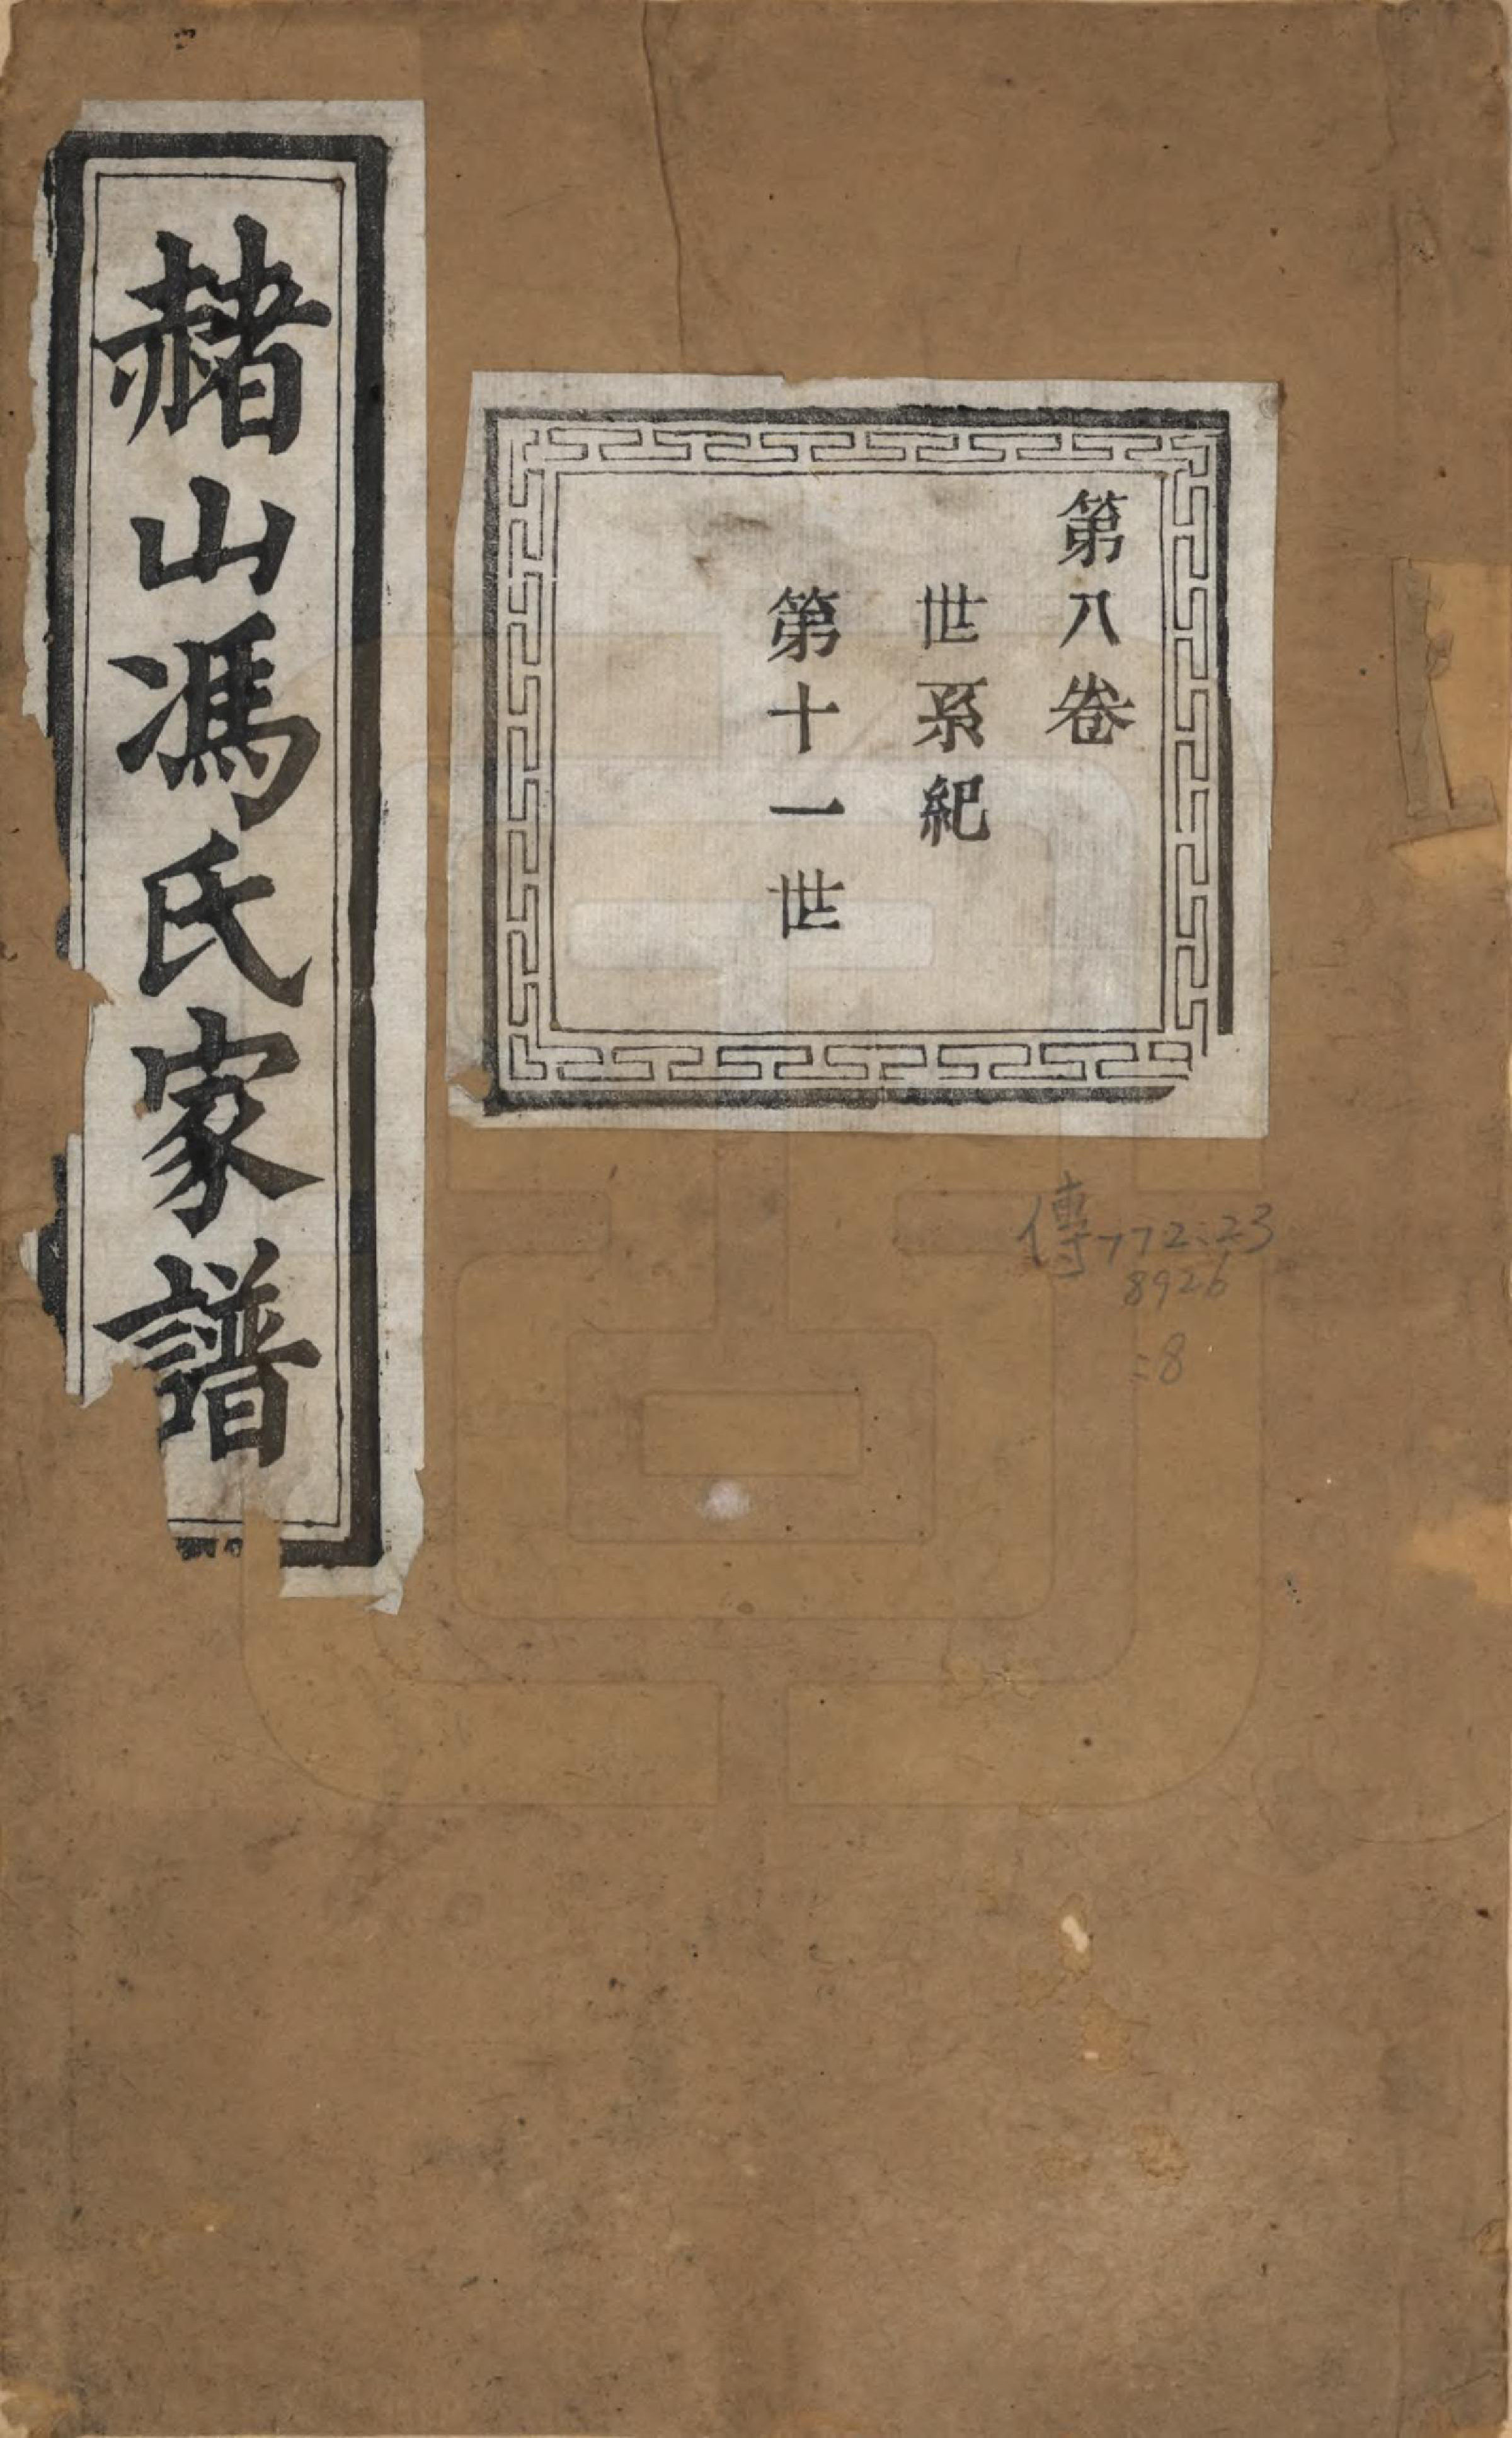 赭山馮氏家譜
第八卷
世系紀
第十一世
傳772.23
8926
:8